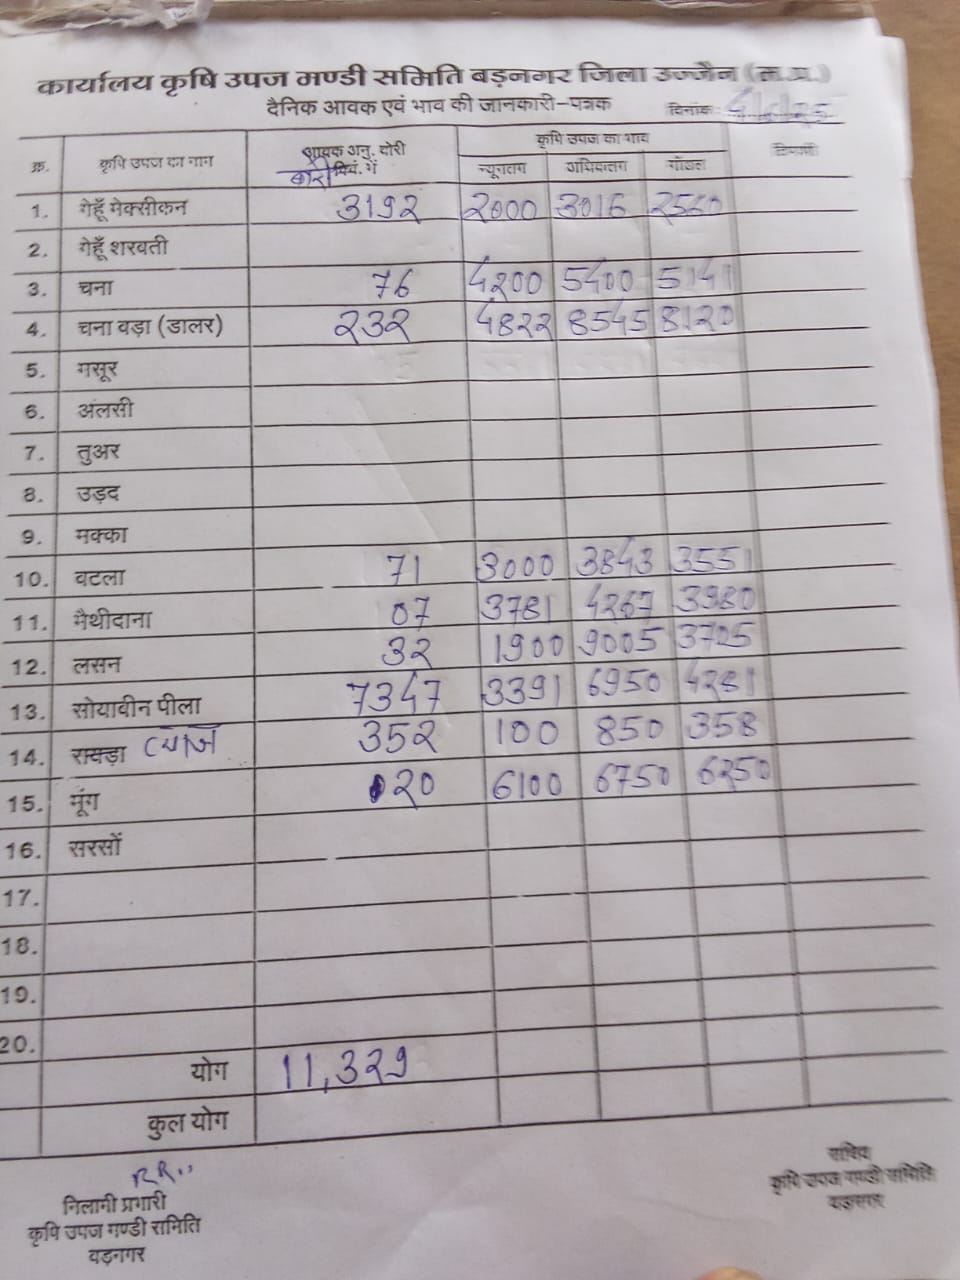 कार्यालय कृषि उपज मण्डी समिति बड़नगर जिला उज्जैन (म.प्र.)
दैनिक आवक एवं भाव की जानकारी-पत्रक दिनांक
क्र. कृषि उपज का नाम आवक अनु. बोरी बोरी क्विं. में कृषि उपज का भाव टिप्पणी
न्यूनतम अधिकतम मॉडल
1. गेहूँ मेक्सीकन 3192 2000 3016 2560
2. गेहूँ शरबती
3. चना 76 4200 5400 5141
4. चना बड़ा (डालर) 232 4822 8545 8120
5. मसूर
6. अलसी
7. तुअर
8. उड़द
9. मक्का
10. बटला 71 3000 3843 3551
11. मैथीदाना 07 3781 4267 3980
12. लसन 32 1900 9005 3705
13. सोयाबीन पीला 7347 3391 6950 4281
14. रायड़ा प्याज 352 100 850 358
15. मूंग 20 6100 6750 6250
16. सरसों
17.
18.
19.
20.
योग 11,329
कुल योग
निलामी प्रभारी
कृषि उपज मण्डी समिति
बड़नगर
सचिव
कृषि उपज मण्डी समिति
बड़नगर